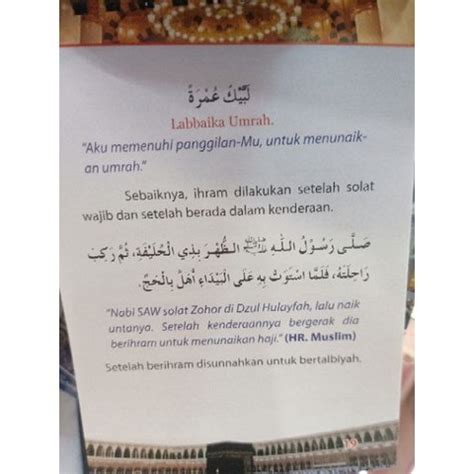 لَبَّيْكَ عُمْرَةً
Labbaika Umrah.
"Aku memenuhi panggilan-Mu, untuk menunaik-
an umrah."
Sebaiknya, ihram dilakukan setelah solat
wajib dan setelah berada dalam kenderaan.
صَلَّى رَسُوْلُ اللهِ ﷺ الظُّهْرَ بِذِي الْحُلَيْفَةِ، ثُمَّ رَكِبَ
رَاحِلَتَهُ، فَلَمَّا اسْتَوَتْ بِهِ عَلَى الْبَيْدَاءِ أَهَلَّ بِالْحَجِّ.
"Nabi SAW solat Zohor di Dzul Hulayfah, lalu naik
untanya. Setelah kenderaannya bergerak dia
berihram untuk menunaikan haji." (HR. Muslim)
Setelah berihram disunnahkan untuk bertalbiyah.